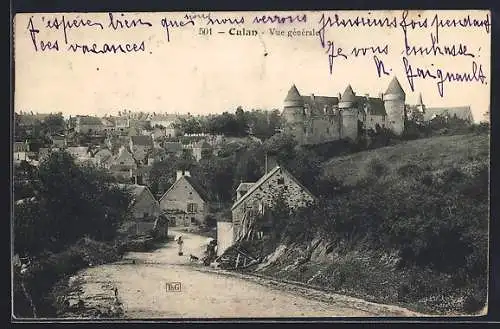 J'espère bien que nous nous verrons plusieurs fois pendant
ces vacances.
Je vous embrasse
501 - Culan - Vue générale